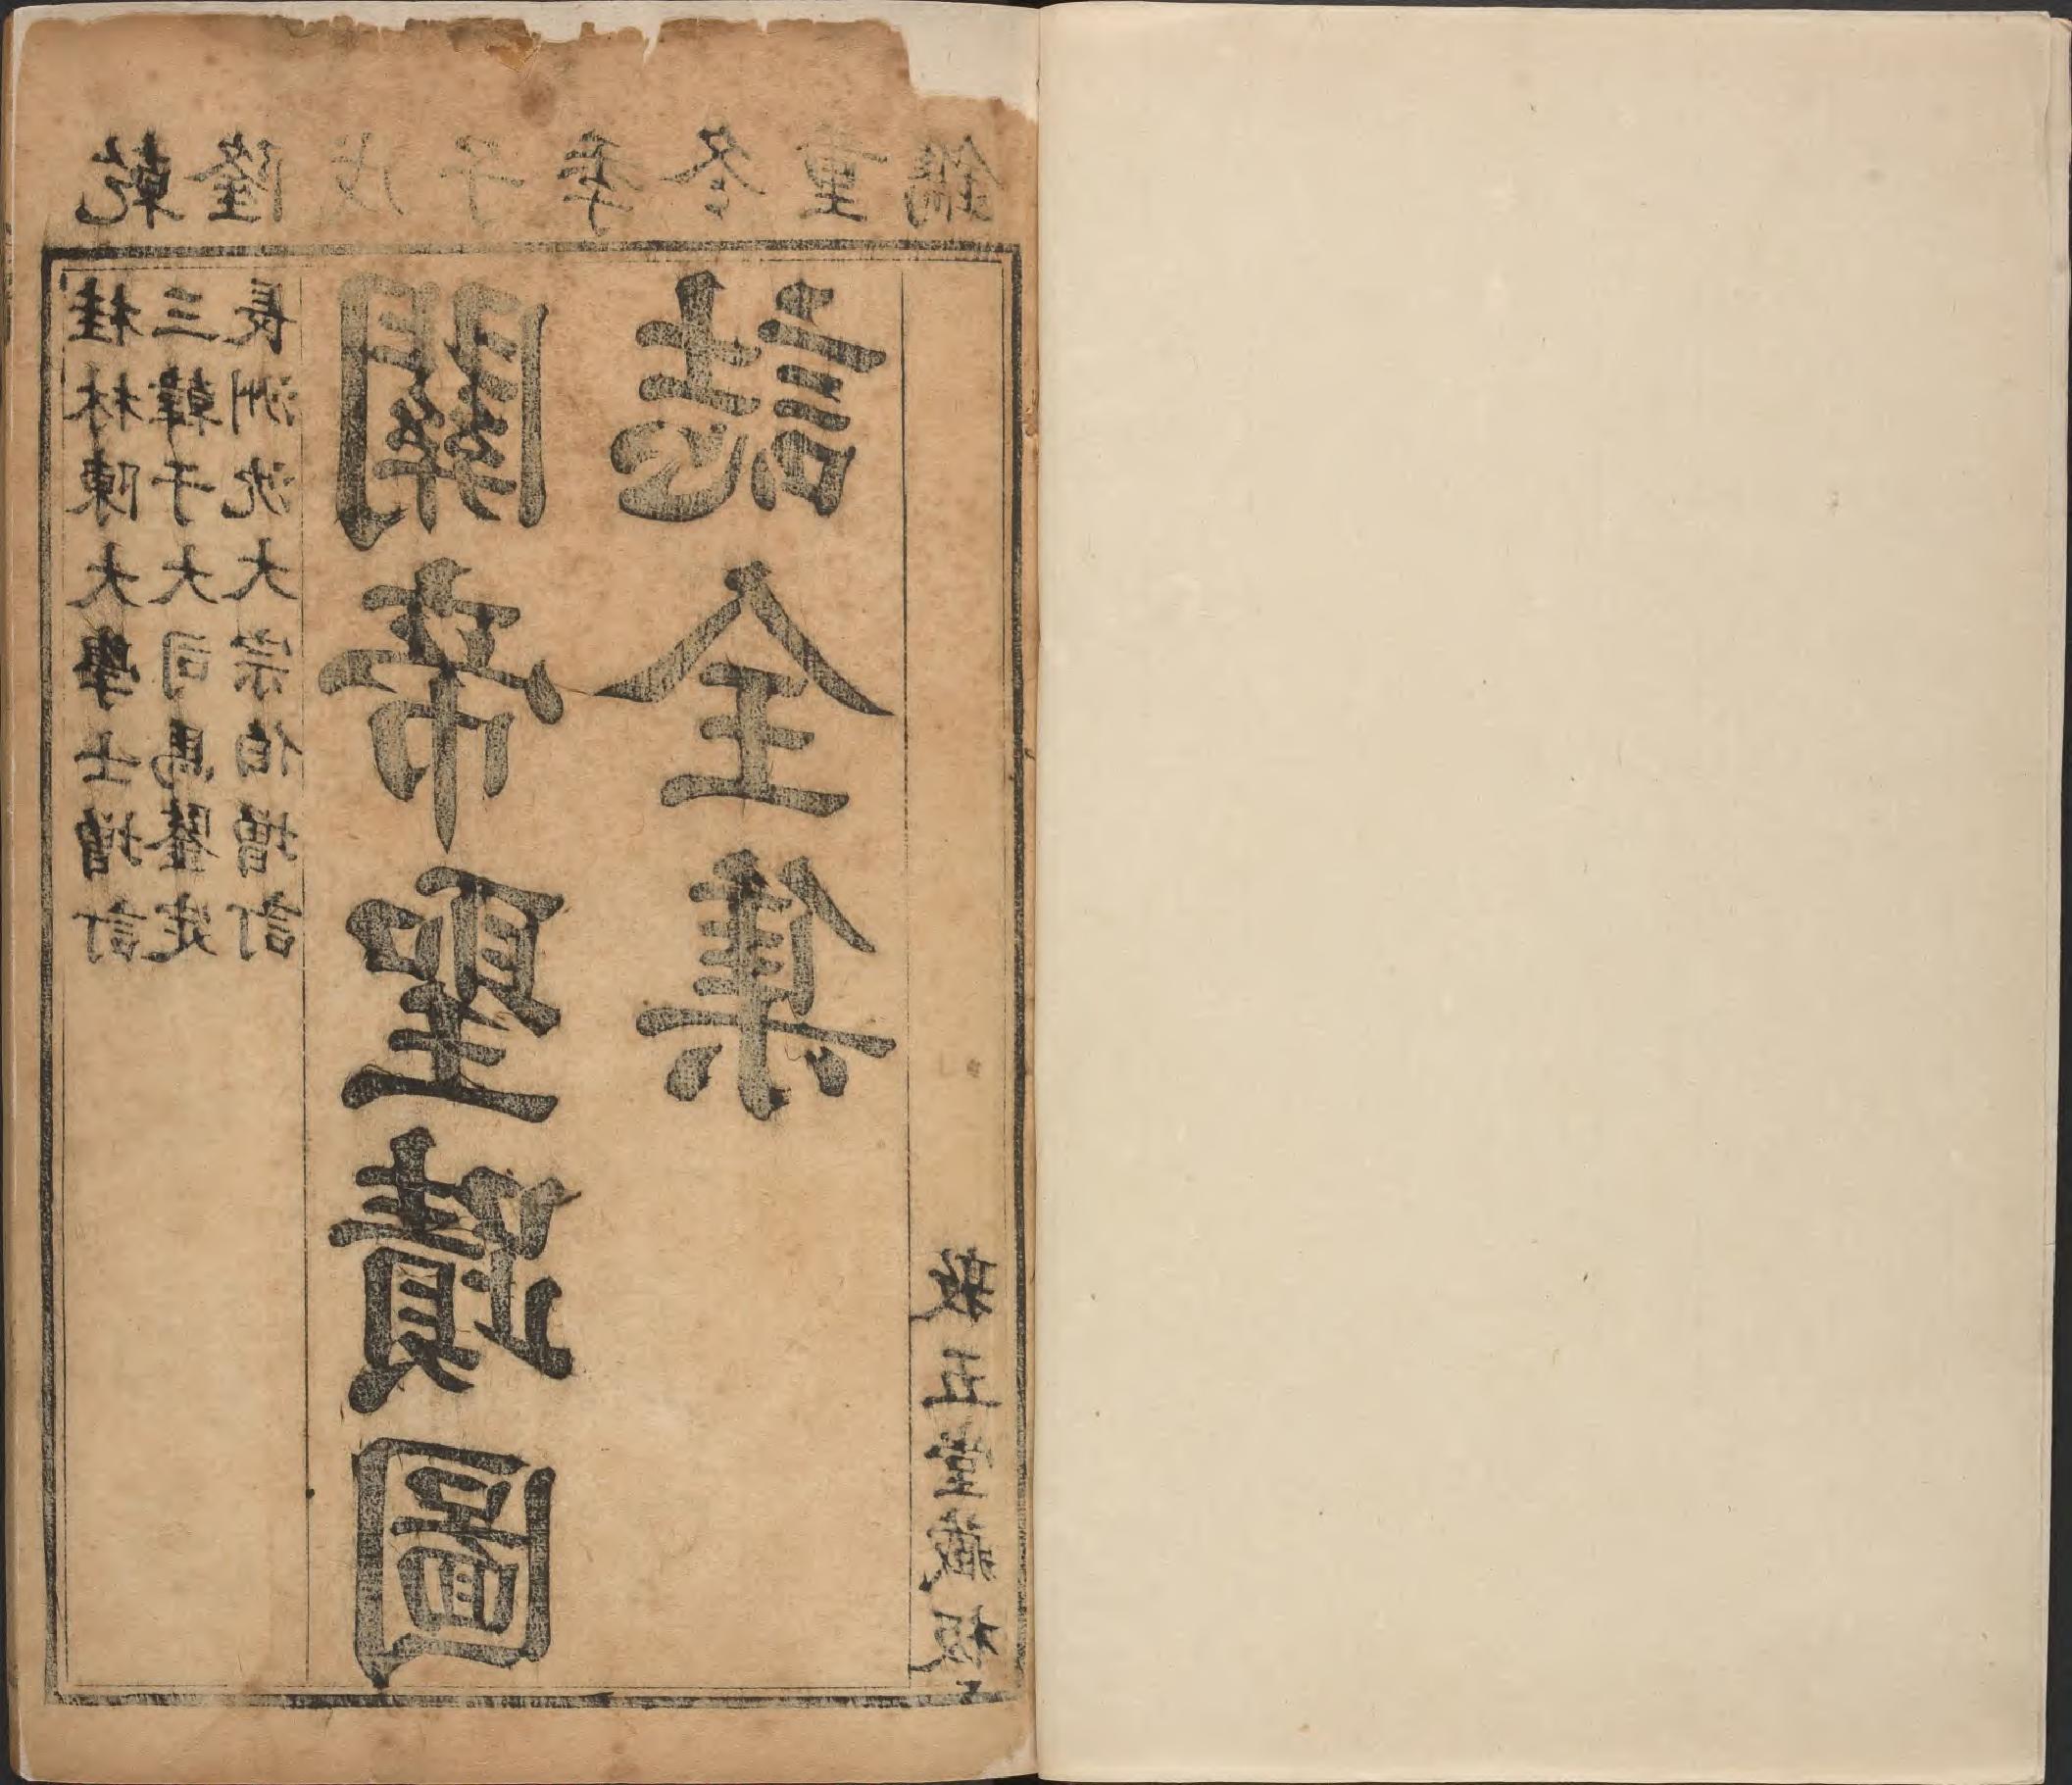 乾隆戊子季冬重鐫
桂林陳大學士增訂
三韓于大司馬鑒定
長洲沈大宗伯增訂
關帝聖蹟圖
誌全集
敬五堂藏板